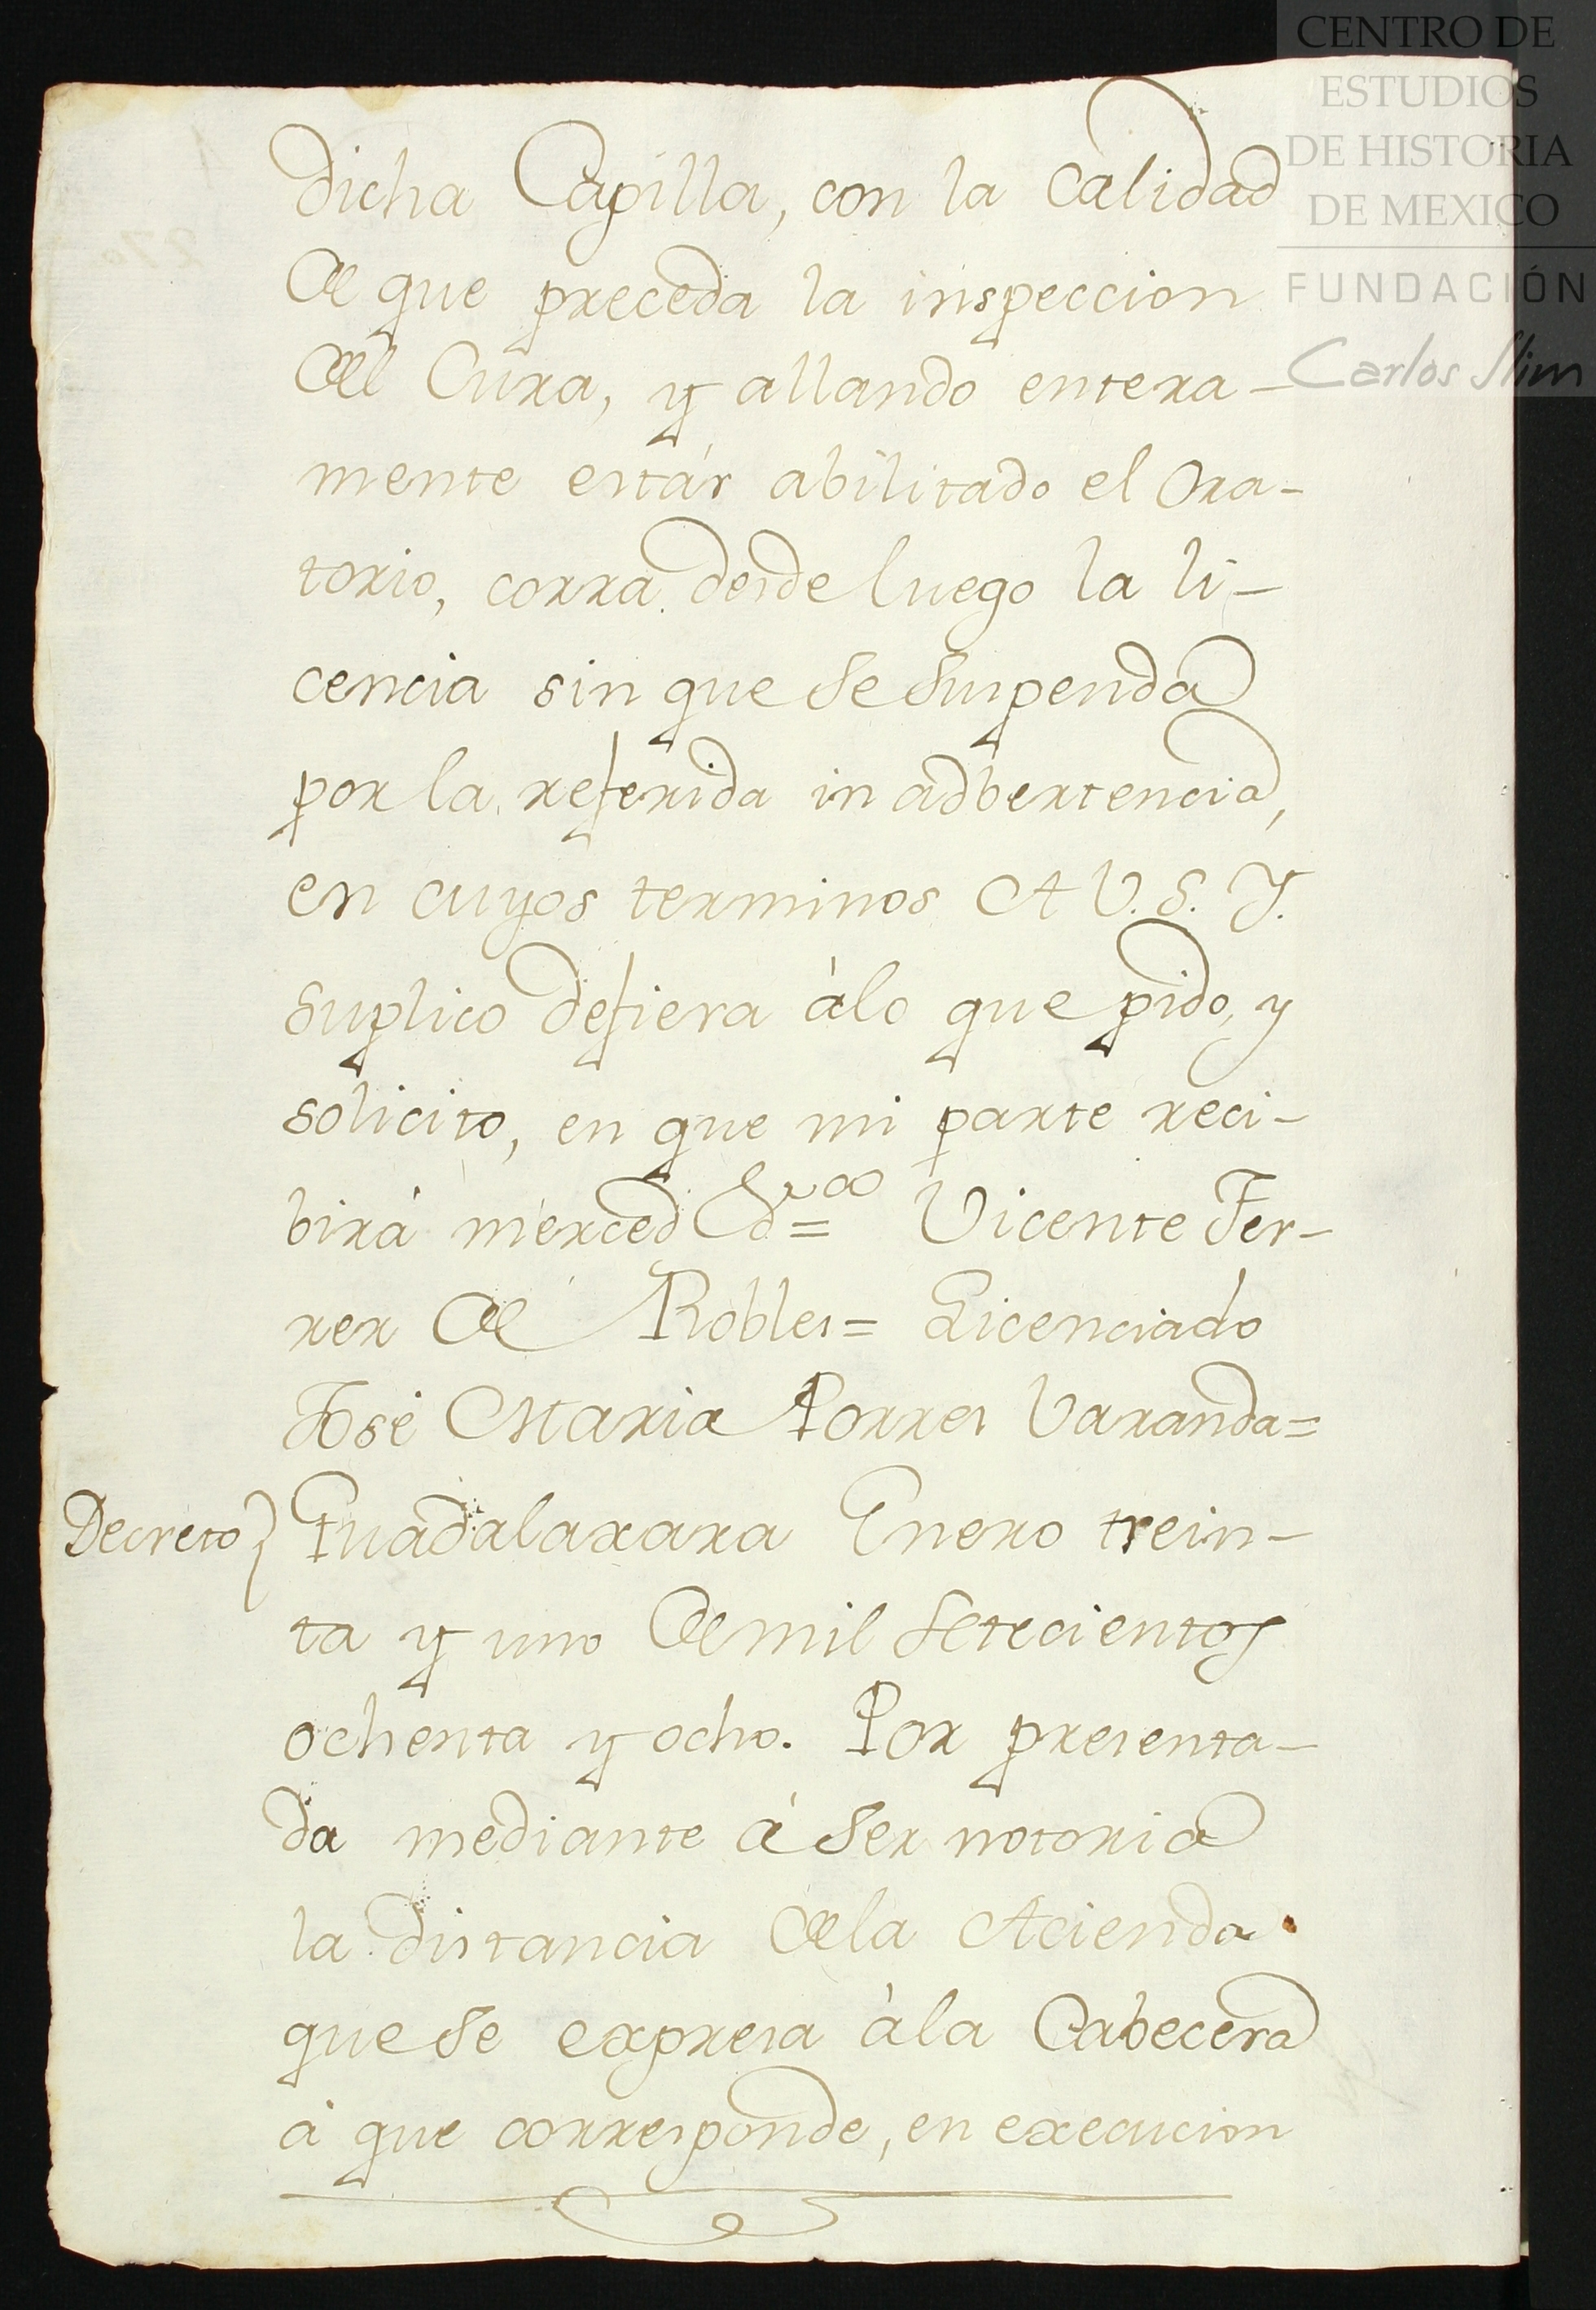 CENTRO DE
ESTUDIOS
DE HISTORIA
DE MEXICO
FUNDACIÓN
Carlos Slim
dicha Capilla, con la Calidad
de que preceda la inspeccion
del Cura, y allando entera-
mente estár abilitado el Ora-
torio, corra desde luego la li-
cencia sin que se suspenda
por la referida inadbertencia,
en cuyos terminos A V. S. Y.
suplico defiera àlo que pido, y
solicito, en que mi parte reci-
birá merced &ª = Vicente Fer-
rer de Robles = Licenciado
José Maria Porres Varanda=
Decreto} Guadalaxara Enero trein-
ta y uno de mil setecientos
ochenta y ocho. Por presenta-
da mediante á ser notoria
la distancia dela Acienda
que se expresa àla Cabecera
á que corresponde, en execucion